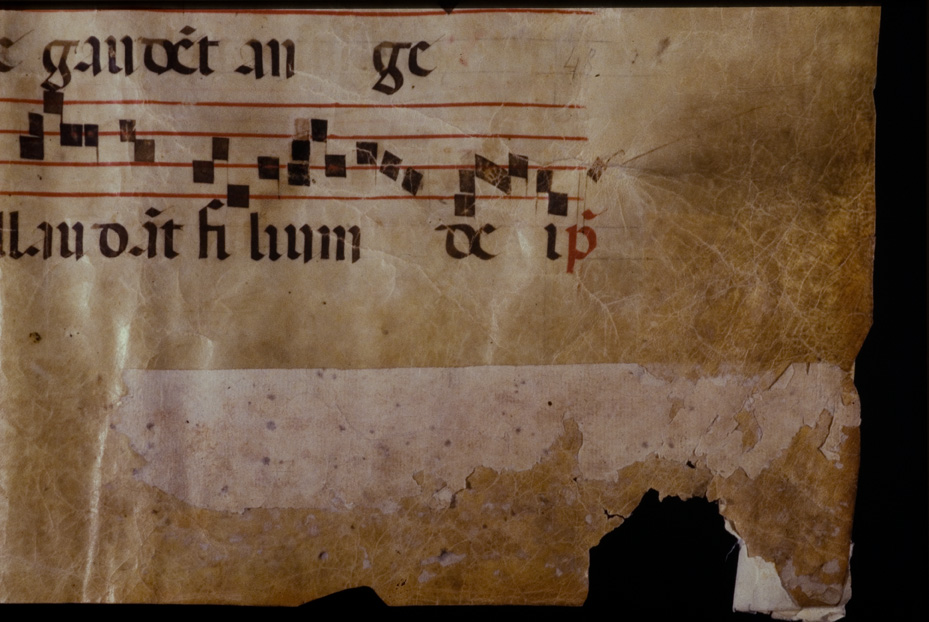 gaudēt an ge
llaudāt fi lium de i p̄